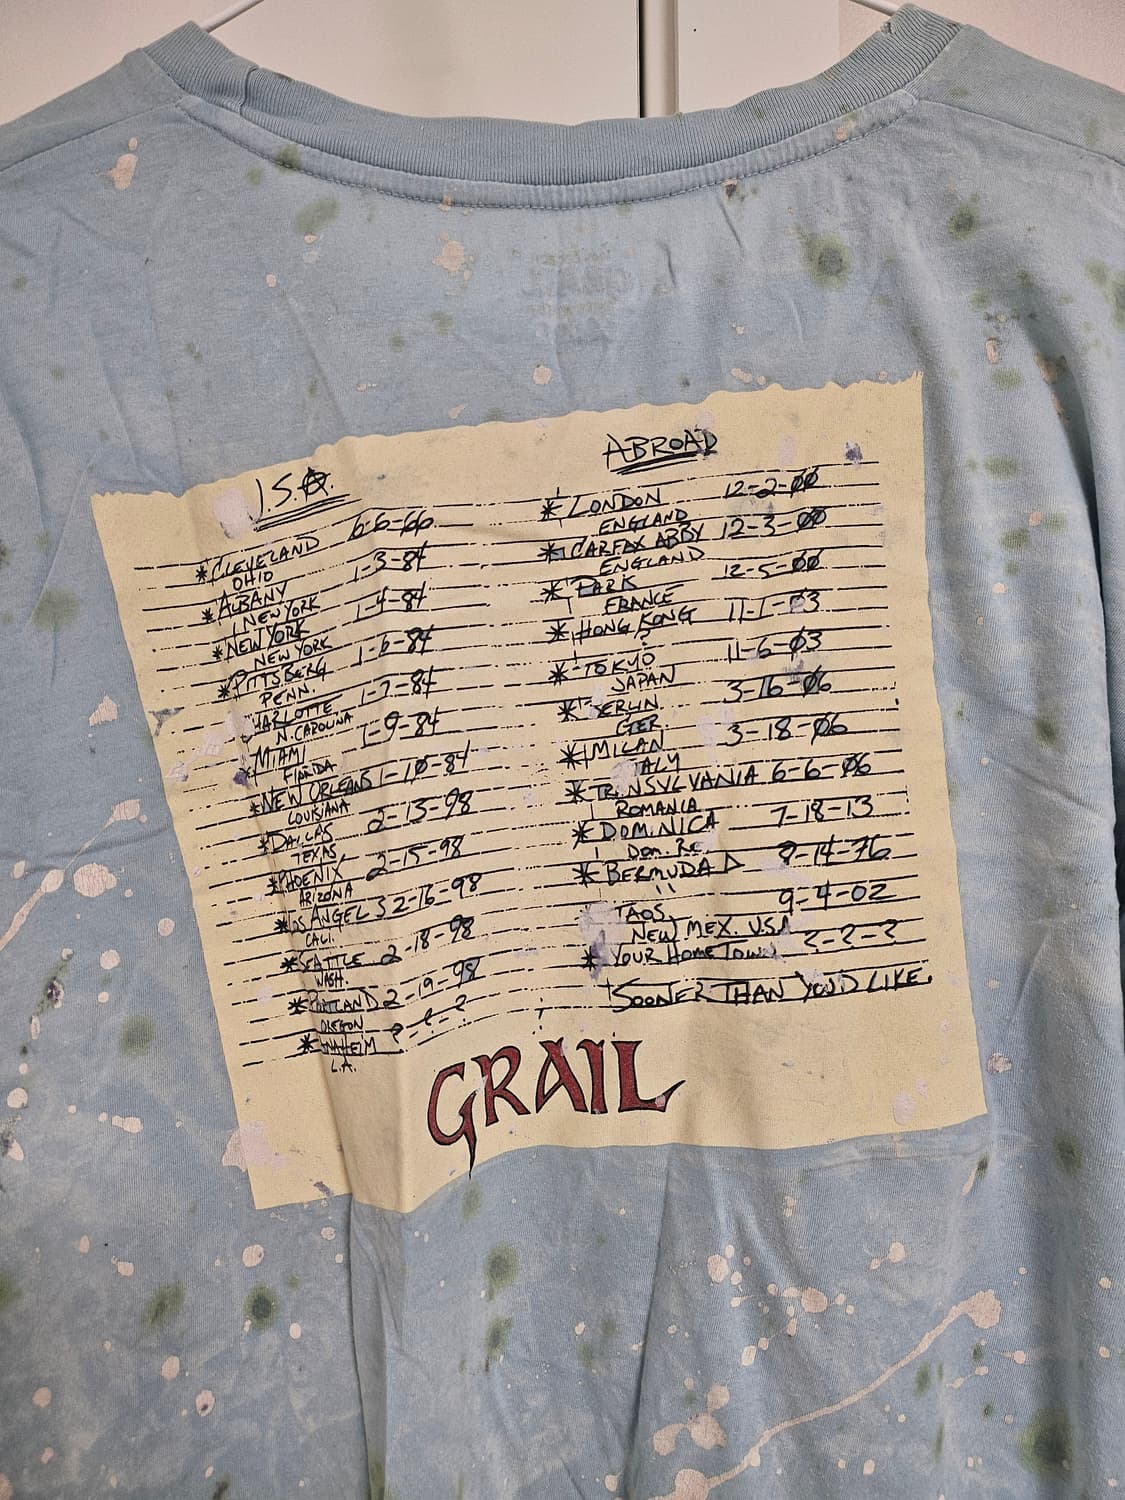 U.S.A.
6-6-66
*CLEVELAND
OHIO
1-3-84
*ALBANY
NEW YORK
1-4-84
*NEW YORK
NEW YORK
1-6-84
*PITTSBERG
PENN.
1-7-84
CHARLOTTE
N. CAROLINA
1-9-84
*MIAMI
FLORIDA
*NEW ORLEANS 1-10-84
LOUISIANA
*DALLAS 2-13-98
TEXAS
*PHOENIX 2-15-98
ARIZONA
*LOS ANGELS 2-16-98
CALI.
*SEATTLE 2-18-98
WASH.
*PORTLAND 2-19-98
OREGON
*ANAHEIM ?-?-?
L.A.
ABROAD
*LONDON 12-2-00
ENGLAND
*CARFAX ABBY 12-3-00
ENGLAND
*PARIS 12-5-00
FRANCE
*HONG KONG 11-1-03
?
*TOKYO 11-6-03
JAPAN
*BERLIN 3-16-06
GER.
*MILAN 3-18-06
ITALY
*TRANSYLVANIA 6-6-06
ROMANIA
*DOMINICA 7-18-13
Dom. Re.
*BERMUDA 8-14-76
"
TAOS, 9-4-02
NEW MEX. U.S.A
*YOUR HOMETOWN ?-?-?
SOONER THAN YOU'D LIKE.
GRAIL